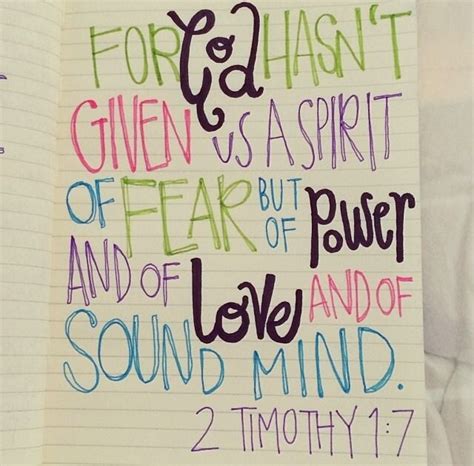 FOR God HASN'T
GIVEN US A SPIRIT
OF FEAR BUT OF Power
AND OF Love AND OF
SOUND MIND.
2 TIMOTHY 1:7